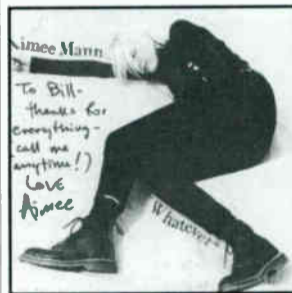 Aimee Mann
To Bill-
thanks for
everything-
call me
anytime!)
LOVE
Aimee
Whatever